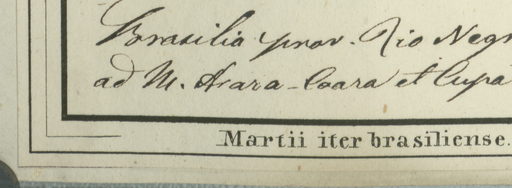 Brasilia prov. Rio Negr
ad M. Arara-Coara et Cupa
Martii iter brasiliense.